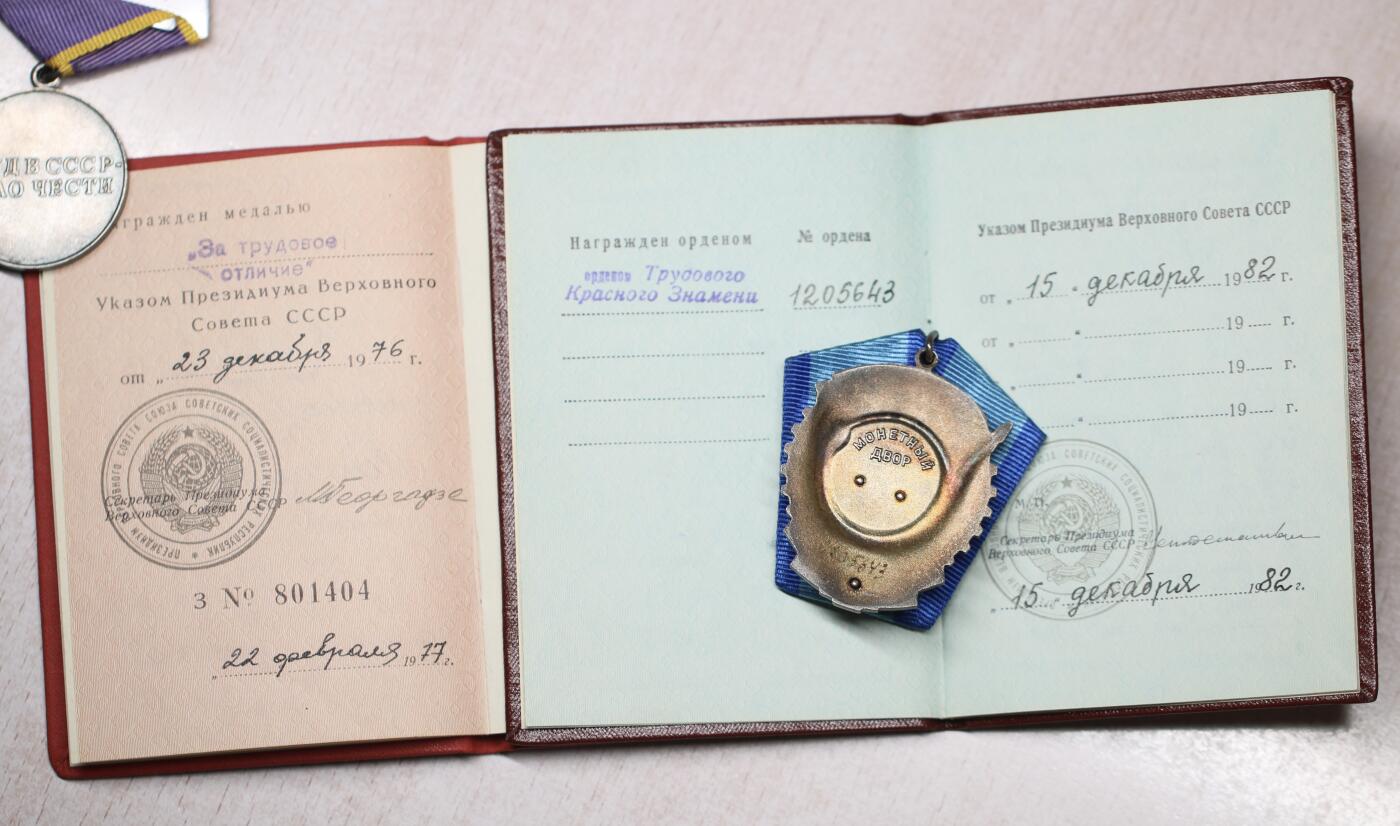 Д В СССР-
ЛО ЧЕСТИ
агражден медалью
„За трудовое
отличие“
Указом Президиума Верховного
Совета СССР
от „ 23 декабря 1976 г.
ПРЕЗИДИУМ ВЕРХОВНОГО СОВЕТА СОЮЗА СОВЕТСКИХ СОЦИАЛИСТИЧЕСКИХ РЕСПУБЛИК
Секретарь Президиума
Верховного Совета СССР
МГеоргадзе
З № 801404
„ 22 февраля 1977 г.
Награжден орденом
орденом Трудового
Красного Знамени
№ ордена
1205643
Указом Президиума Верховного Совета СССР
от „ 15 “ декабря 1982 г.
от „ “ 19 г.
„ “ 19 г.
„ “ 19 г.
МОНЕТНЫЙ
ДВОР
М.П.
СОВЕТА СОЮЗА СОВЕТСКИХ СОЦИАЛИСТИЧЕСКИХ
Секретарь Президиума
Верховного Совета СССР
„ 15 “ декабря 1982 г.